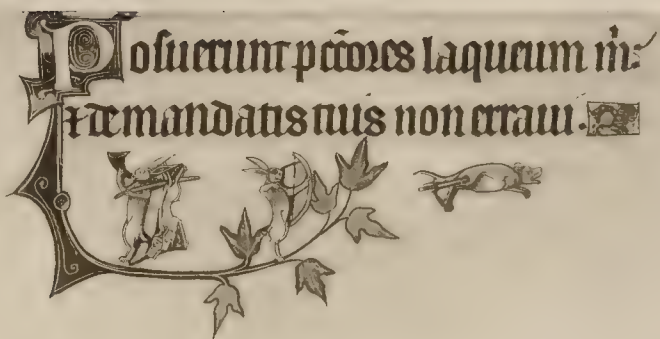 Posuerunt pc̄tores laqueum mⁱ:
⁊ de mandatis tuis non erraui.